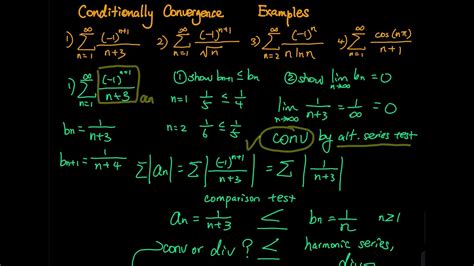 Conditionally Convergence Examples
1) ∑_{n=1}^{∞} (-1)^{n+1}/(n+3) 2) ∑_{n=1}^{∞} (-1)^{n+1}/√n 3) ∑_{n=2}^{∞} (-1)^n/(n ln n) 4) ∑_{n=1}^{∞} cos(nπ)/(n+1)
1) ∑_{n=1}^{∞} (-1)^{n+1}/(n+3) an
① show bn+1 ≤ bn
② show lim_{n→∞} bn = 0
bn = 1/(n+3)
n=1 1/5 ≤ 1/4
lim_{n→∞} 1/(n+3) = 1/∞ = 0
bn+1 = 1/(n+4)
n=2 1/6 ≤ 1/5
conv by alt. series test
∑|an| = ∑|(-1)^{n+1}/(n+3)| = ∑|1/(n+3)|
comparison test
an = 1/(n+3) ≤ bn = 1/n n≥1
conv or div? ≤ harmonic series,
div